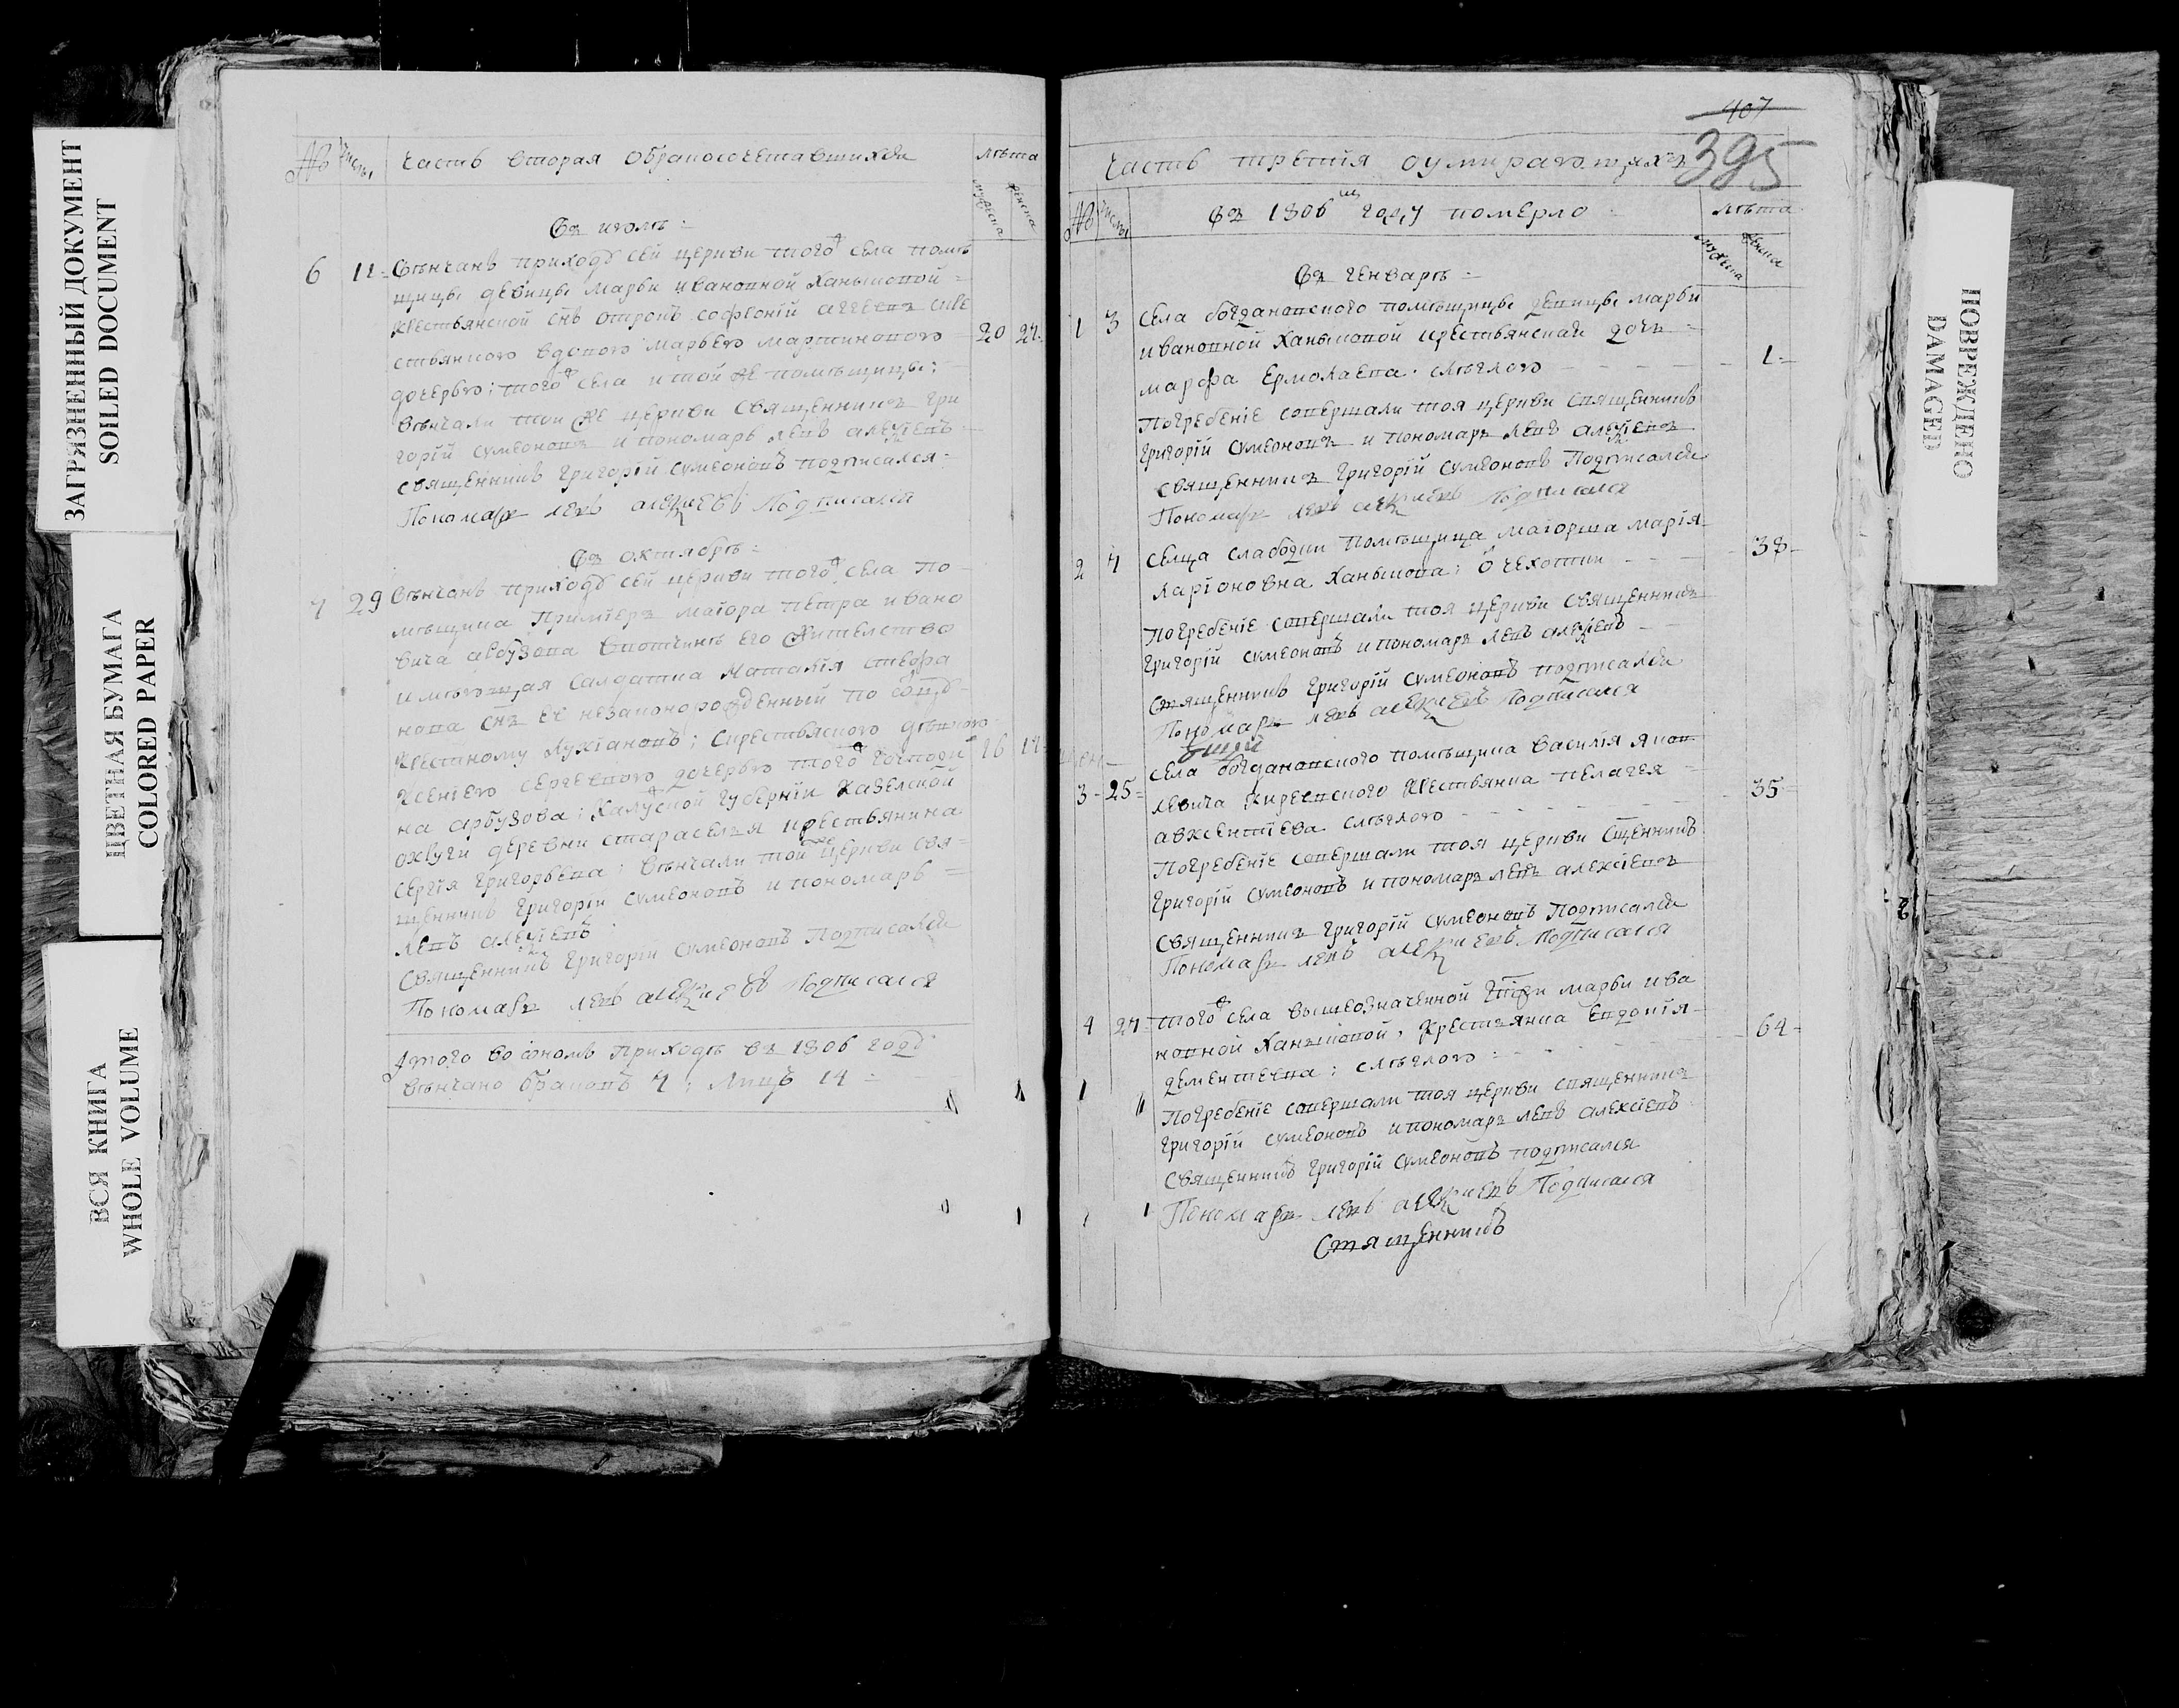 ЗАГРЯЗНЕННЫЙ ДОКУМЕНТ
SOILED DOCUMENT
ЦВЕТНАЯ БУМАГА
COLORED PAPER
ВСЯ КНИГА
WHOLE VOLUME
№ числы Часть вторая о бракосочетавшихся лѣта
мужеска женска
Въ июлѣ:
6 11 Венчанъ приходѣ сей церкви того ж села помѣ
щицы девицы Марьи Ивановной Ханыковой
крестьянской снъ отрокъ Софроній Агеевъ с кре
стьянскою вдовою Марьею Мартиновою 20 27
дочерью; того ж села и той же помѣщицы;
Венчали той же церкви священникъ Гри
горій Сумеоновъ и пономарь Левъ Алеѯіевъ
священникъ Григорій Сумеоновъ подписался
Пономарь Левъ Алеѯиевъ Подписался
Въ октябрѣ:
7 29 Венчанъ приходѣ сей церкви того ж села по
мѣщика Примиеръ Маіора Петра Ивано
вича Арбузова вотчинѣ его жителство
имѣющая салдатка Наталія Стефа
нова снъ ея незаконорожденный по
крестному Лукіановъ; с крестьянского
Ксениею Сергеевою дочерью того ж господи 26 17
на Арбузова; Калуской губерніи Казелской
округи деревни Староселья крестьянина
Сергія Григорьева; Венчали той церкви свя
щенникъ Григорій Сумеоновъ и пономарь
Левъ Алеѯіевъ
Священникъ Григорій Сумеоновъ Подписался
Пономарь Левъ Алеѯиевъ Подписался
Итого во ономъ приходѣ въ 1806 годѣ
венчано браковъ 7; лицъ 14
407
395
Часть третія о умирающихъ
№ числы Въ 1806 году померло: лѣта
мужеска женска
Въ генварѣ:
1 3 Села Богдановского помѣщицы девицы Марьи
Ивановной Ханыковой крестьянская дочь
Марфа Ермолаева. 1
Погребеніе совершали тоя церкви священникъ
Григорій Сумеоновъ и пономарь Левъ Алеѯіевъ
священникъ Григорій Сумеоновъ Подписался
Пономарь Левъ Алеѯиевъ Подписался
2 7 Селца Слабодки помѣщица Маіорша Марія
Ларіоновна Ханыкова; о чехотки 38
Погребеніе совершали тоя церкви священникъ
Григорій Сумеоновъ и пономарь Левъ Алеѯіевъ
Священникъ Григорій Сумеоновъ подписался
Пономарь Левъ Алеѯиевъ Подписался
3 25 Села Богдановского помѣщика Василія Яков
левича Киреевского крестьянка Пелагея 35
Авксентиева
Погребеніе совершали тоя церкви сщенникъ
Григорій Сумеоновъ и пономарь Левъ Алексіевъ
Священникъ Григорій Сумеоновъ Подписался
Пономарь Левъ Алеѯиевъ Подписался
4 27 того ж села вышеозначенной гпжи Марьи Ива
новной Ханыковой, крестьянка Евдокія 64
Дементеева;
Погребеніе совершали тоя церкви священникъ
Григорій Сумеоновъ и пономарь Левъ Алексіевъ
Священникъ Григорій Сумеоновъ подписался
Пономарь Левъ Алеѯиевъ Подписался
Священникъ
ПОВРЕЖДЕНО
DAMAGED